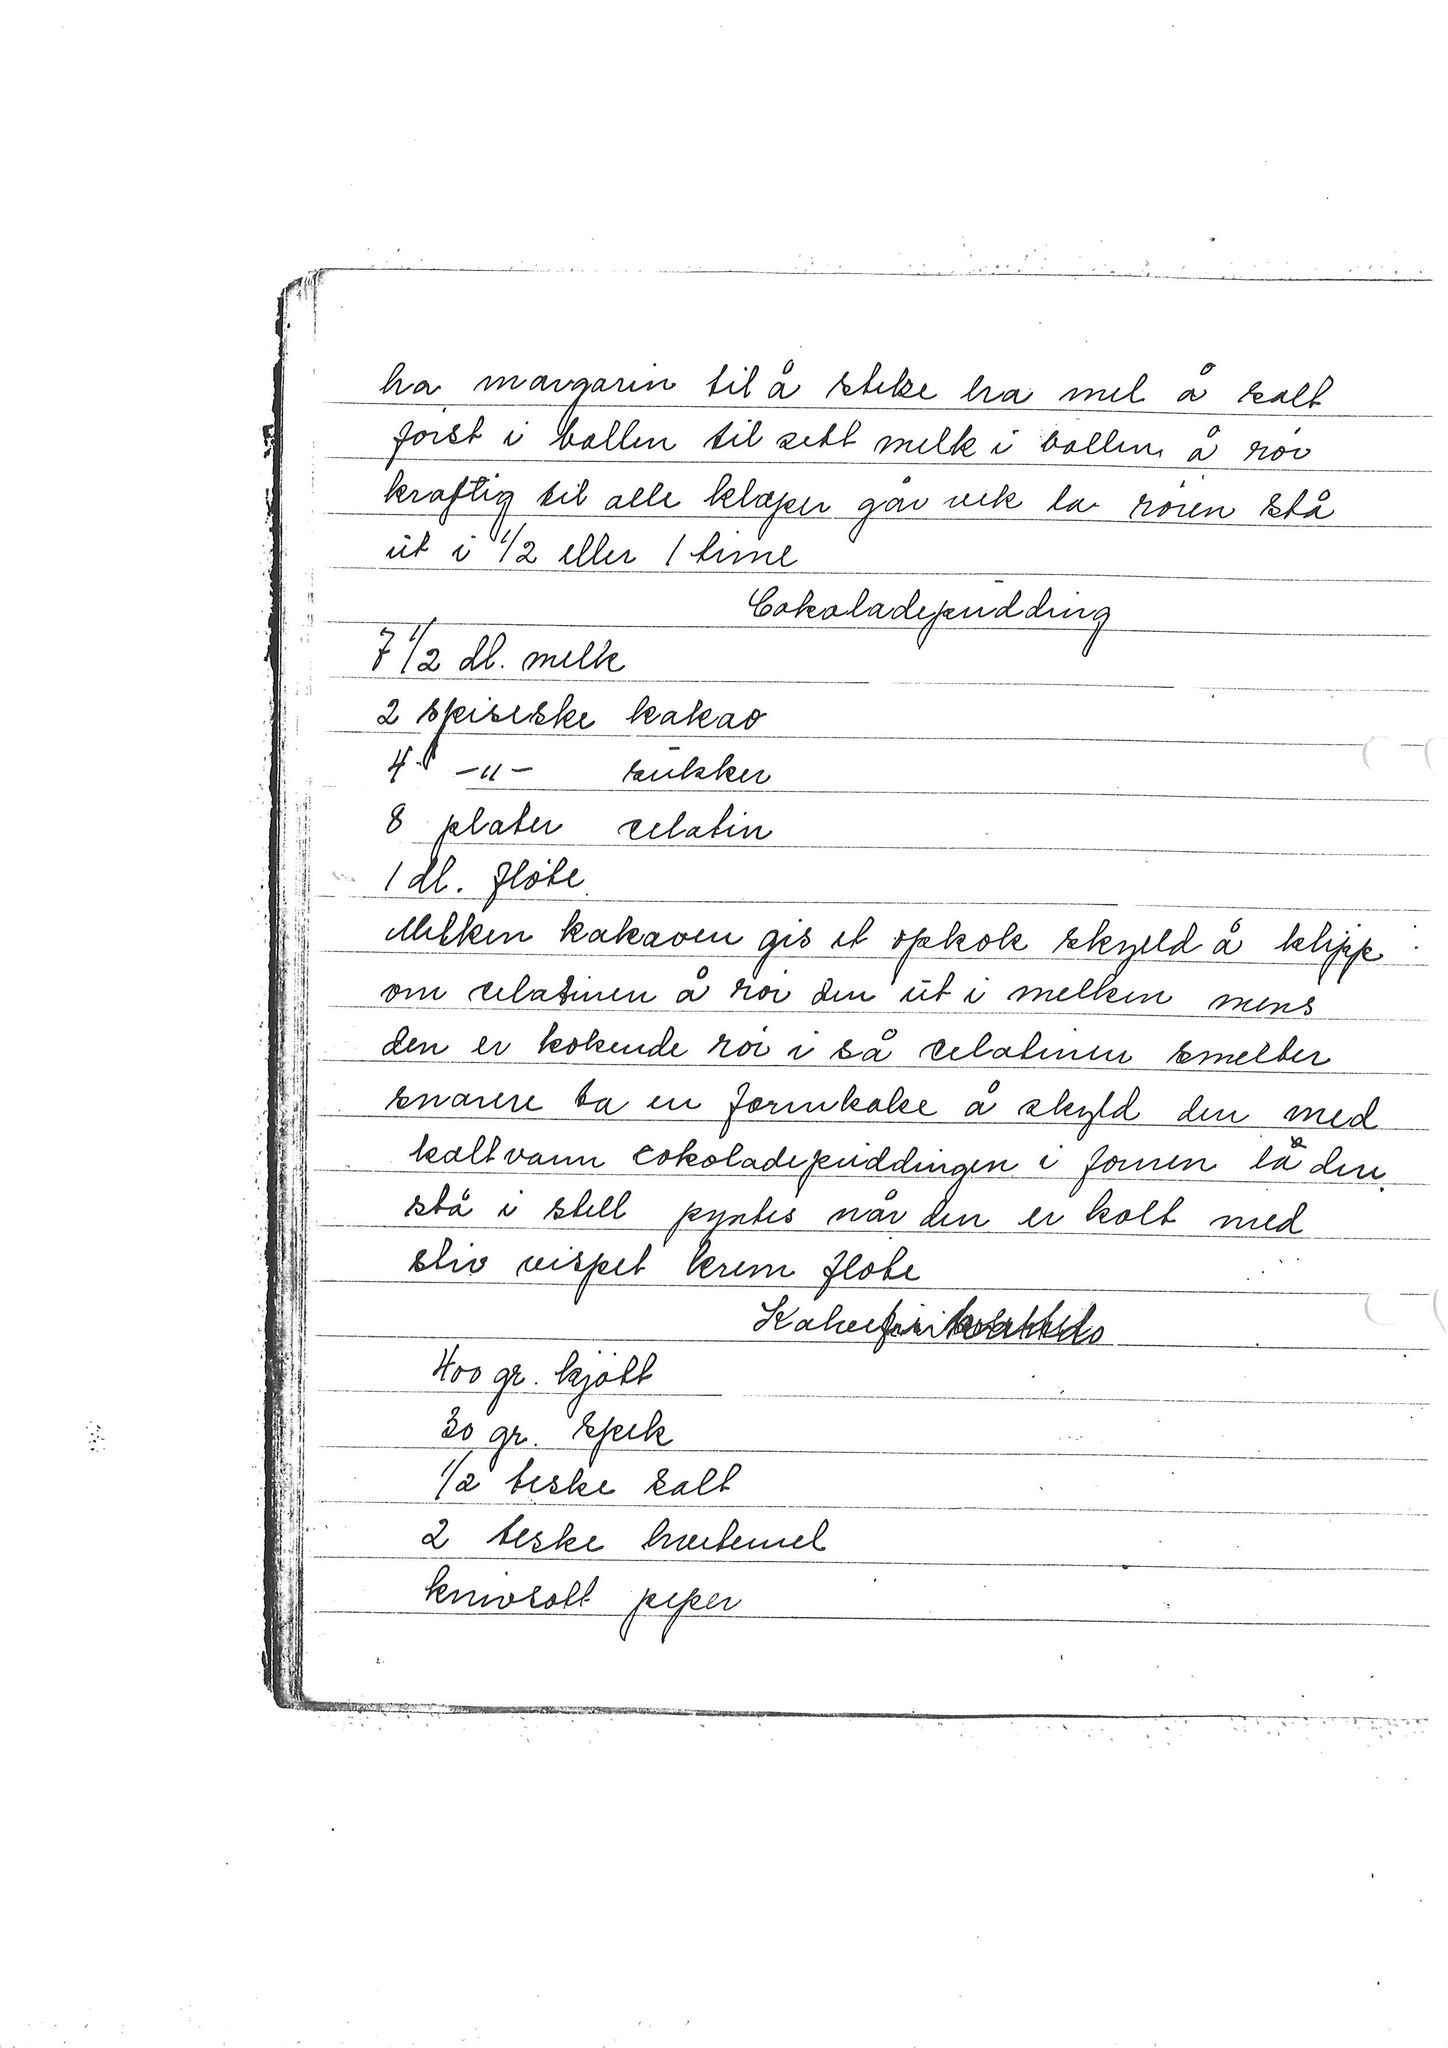 ha margarin til å steke ha mel å salt
först i bollen til sett melk i bollen å rör
kraftig til alle klaper går vek la rören stå
út i 1/2 eller 1 time
Cokoladepúdding
7 1/2 dl. melk
2 spiseske kakao
4 -"- súkker
8 plater celatin
1 dl. flöte
Melken kakaoen gis et opkok skyld å klipp
om celatinen å rör den út i melken mens
den er kokende rör i så celatinen smelter
snarere ta en formkake å skyld den med
kaltvann cokoladepúddingen i formen la den
stå i stell pyntes når den er kolt med
stiv vispet krem flöte
400 gr. kjött
30 gr. spek
1/2 teske salt
2 teske hvetemel
knivsolt peper